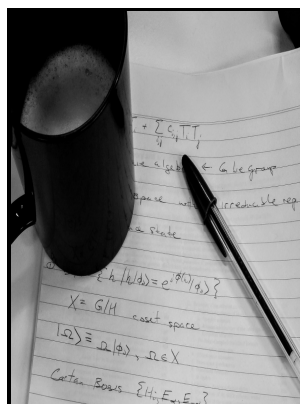 + ∑_{ij} c_{ij} T_i T_j
algebra ← G, Lie group
space irreducable rep
state
{h | h|ϕ₀⟩ = e^{iϕ(h)}|ϕ₀⟩}
X = G/H coset space
|Ω⟩ ≡ Ω|ϕ₀⟩, Ω ∈ X
Cartan Basis {H_i, E_α, E_{-α}}